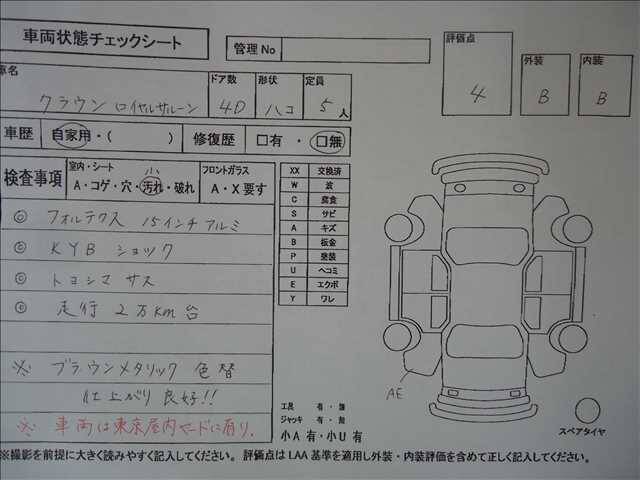 車両状態チェックシート
管理No
評価点
4
外装
B
内装
B
車名
クラウン ロイヤルサルーン
ドア数
4D
形状
ハコ
定員
5人
車歴
自家用・( )
修復歴
□有・□無
検査事項
室内・シート
小
A・コゲ・穴・汚れ・破れ
フロントガラス
A・X要す
◎ フォルテクス 15インチアルミ
◎ KYB ショック
◎ トヨシマ サス
◎ 走行 2万km台
※ ブラウンメタリック 色替
仕上がり 良好!!
※ 車両は東京屋内ヤードに有り.
XX 交換済
W 波
C 腐食
S サビ
A キズ
B 板金
P 塗装
U ヘコミ
E エクボ
Y ワレ
AE
工具 有・無
ジャッキ 有・無
小A 有・小U 有
スペアタイヤ
※撮影を前提に大きく読みやすく記入してください。 評価点はLAA基準を適用し外装・内装評価を含めて正しく記入してください。